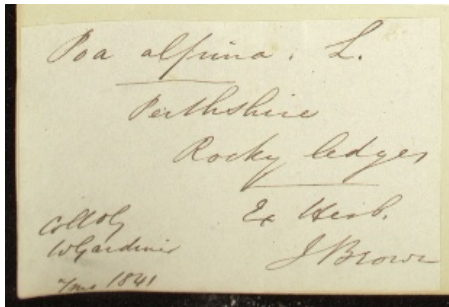 Poa alpina. L.
Perthshire
Rocky ledges
Ex Herb.
J Brown
Coll by
W Gardiner
1841